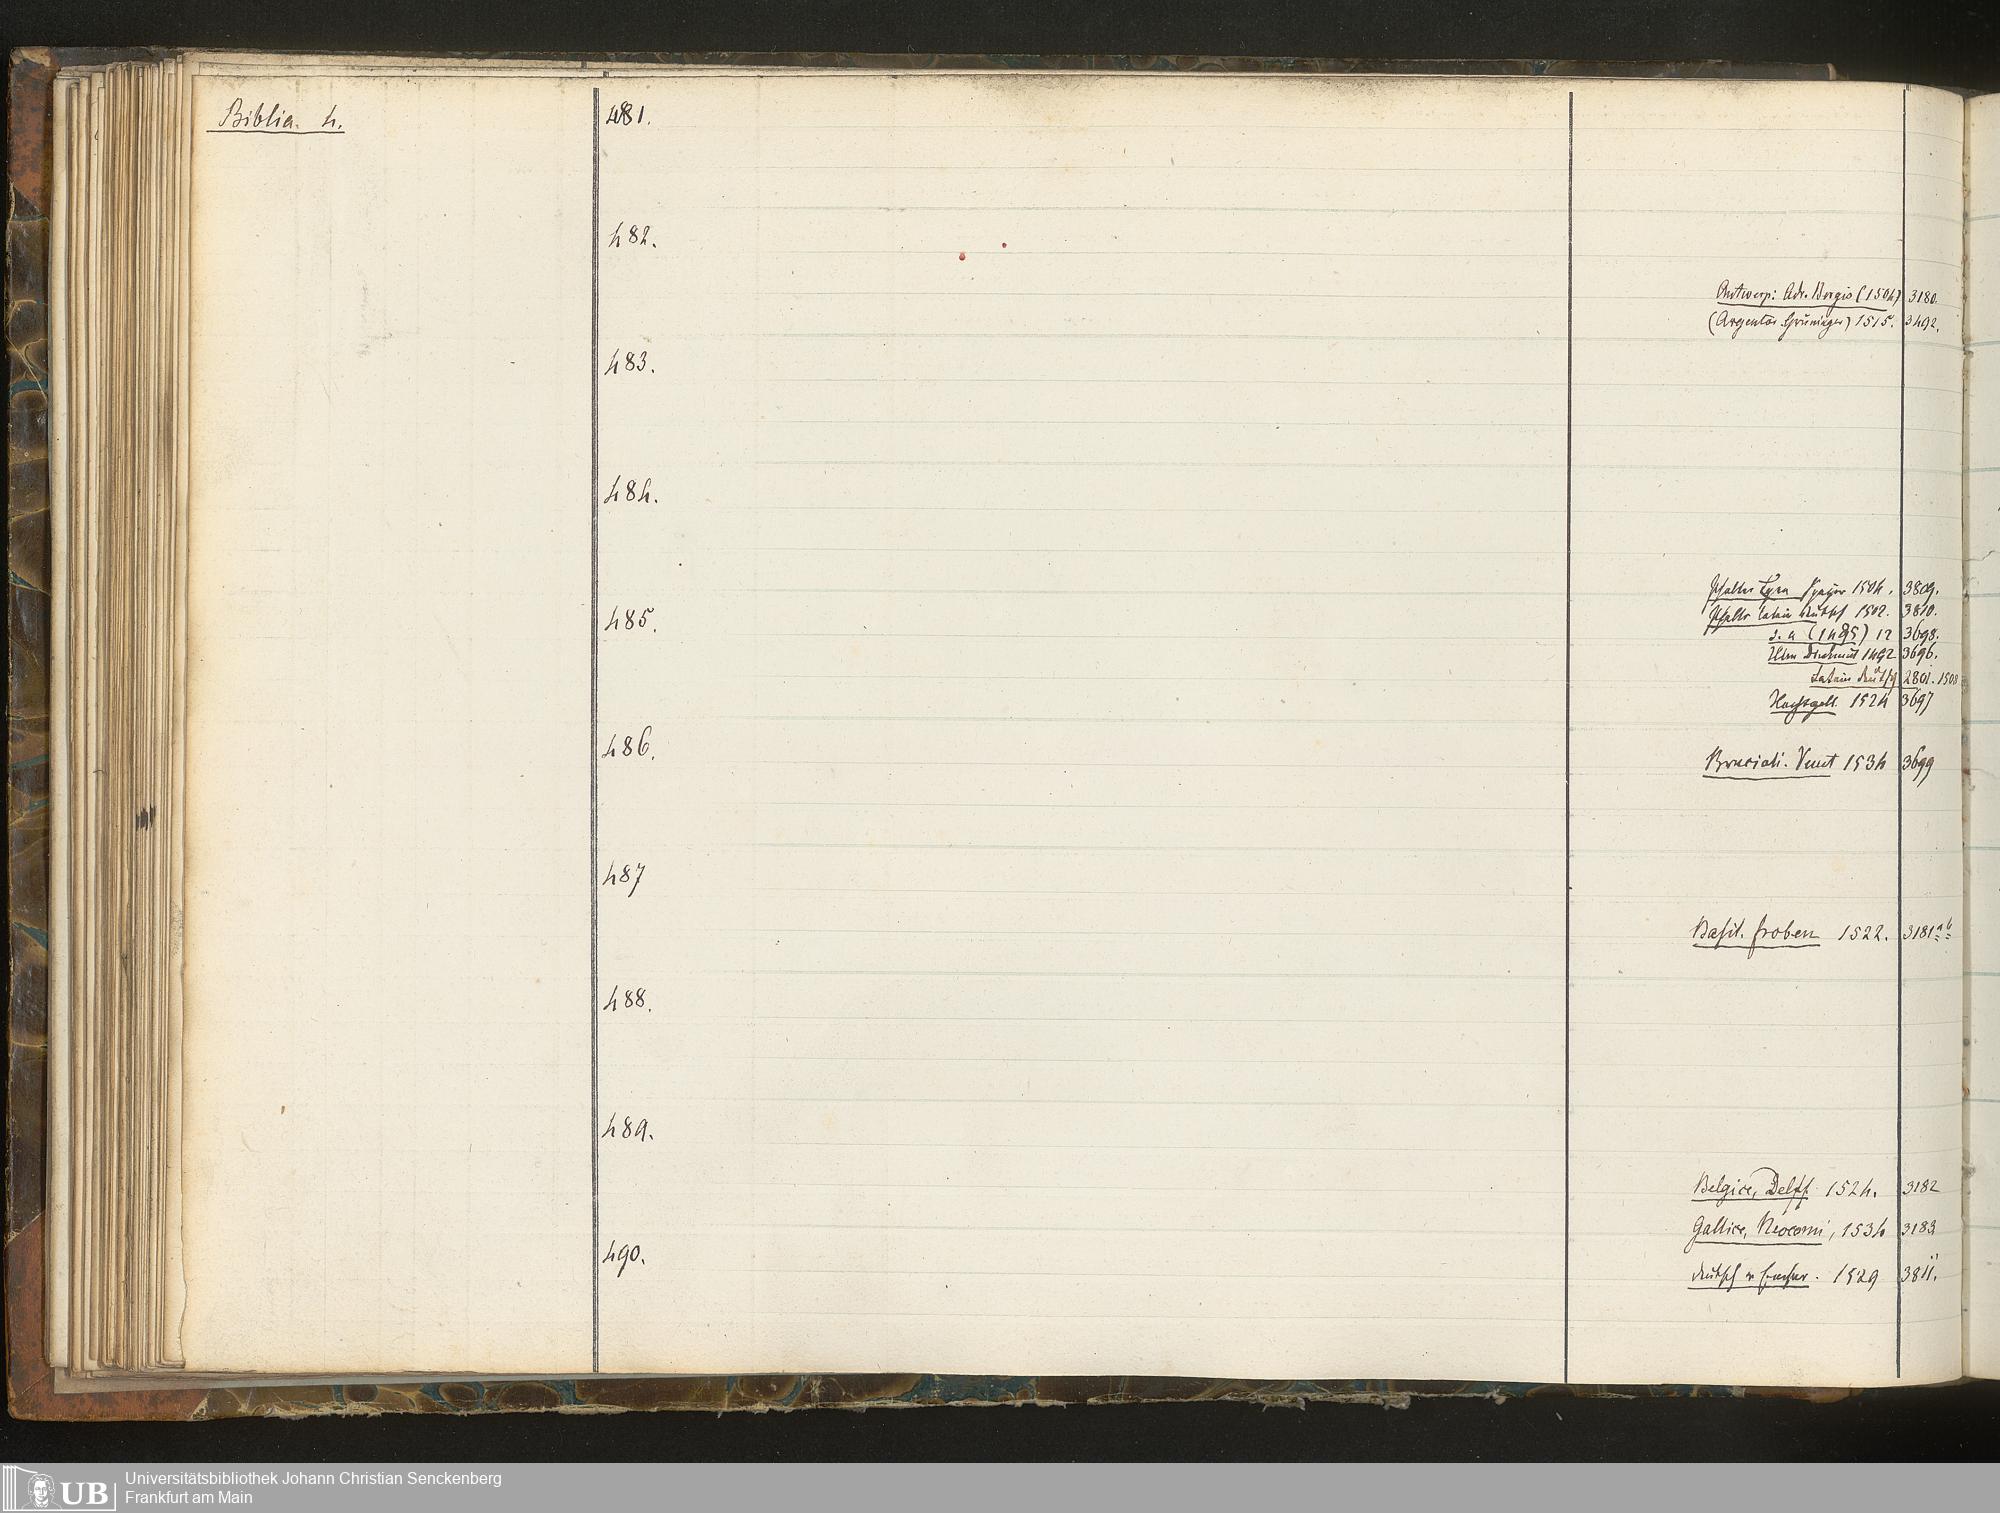 Biblia. 4.
481.
482.
Antwerp: Adr. Bergis (1504) 3180.
(Argentor. Grüninger) 1515. 3492.
483.
484.
Psalter Lyra Speyer 1504. 3809.
485.
Psalter latein deutsch 1502. 3810.
s. a (1495) 12 3698.
Ulm Dinkmut 1492 3696.
Latein deutsch 2801. 1508
1524 3697
486.
Brucioli. Venet 1534 3699
487
Basil. Froben 1522. 3181 a b
488.
489.
Belgice, Delff 1524. 3182
Gallice, Neocomi, 1534 3183
490.
deutsch v. 1529 3811.
Universitätsbibliothek Johann Christian Senckenberg
UB
Frankfurt am Main